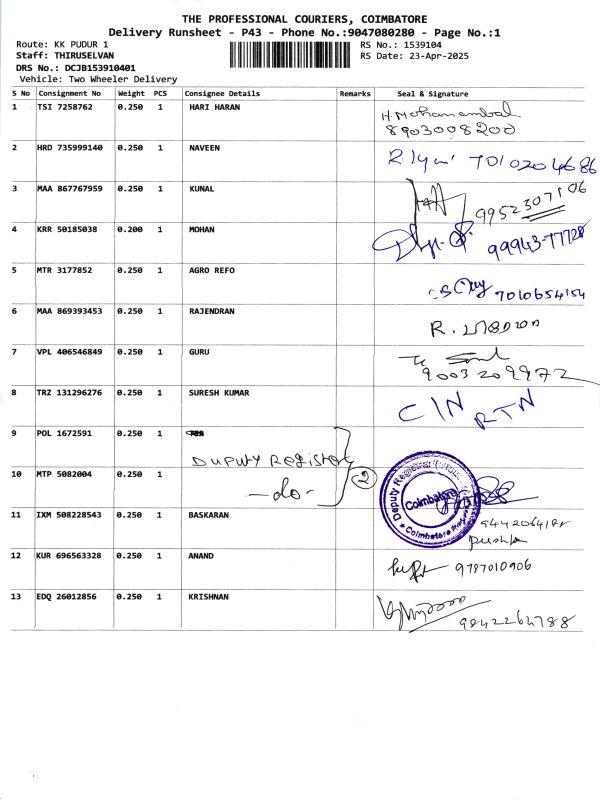 THE PROFESSIONAL COURIERS, COIMBATORE
Delivery Runsheet - P43 - Phone No.:9047080280 - Page No.:1
Route: KK PUDUR 1 RS No.: 1539104
Staff: THIRUSELVAN RS Date: 23-Apr-2025
DRS No.: DCJB153910401
Vehicle: Two Wheeler Delivery
S No Consignment No Weight PCS Consignee Details Remarks Seal & Signature
1 TSI 7258762 0.250 1 HARI HARAN H. Mohanambal
8903008200
2 HRD 735999140 0.250 1 NAVEEN 7010204686
3 MAA 867767959 0.250 1 KUNAL 9952307106
4 KRR 50185038 0.200 1 MOHAN 99943-77728
5 MTR 3177852 0.250 1 AGRO REFO 7010654154
6 MAA 869393453 0.250 1 RAJENDRAN R.
7 VPL 406546849 0.250 1 GURU
9003209972
8 TRZ 131296276 0.250 1 SURESH KUMAR C/N RTN
9 POL 1672591 0.250 1
Deputy Register
10 MTP 5082004 0.250 1 -do- 2 Deputy Registrar Coimbatore
11 IXM 508228543 0.250 1 BASKARAN
Pushpa
12 KUR 696563328 0.250 1 ANAND 9787010906
13 EDQ 26012856 0.250 1 KRISHNAN 9842264788